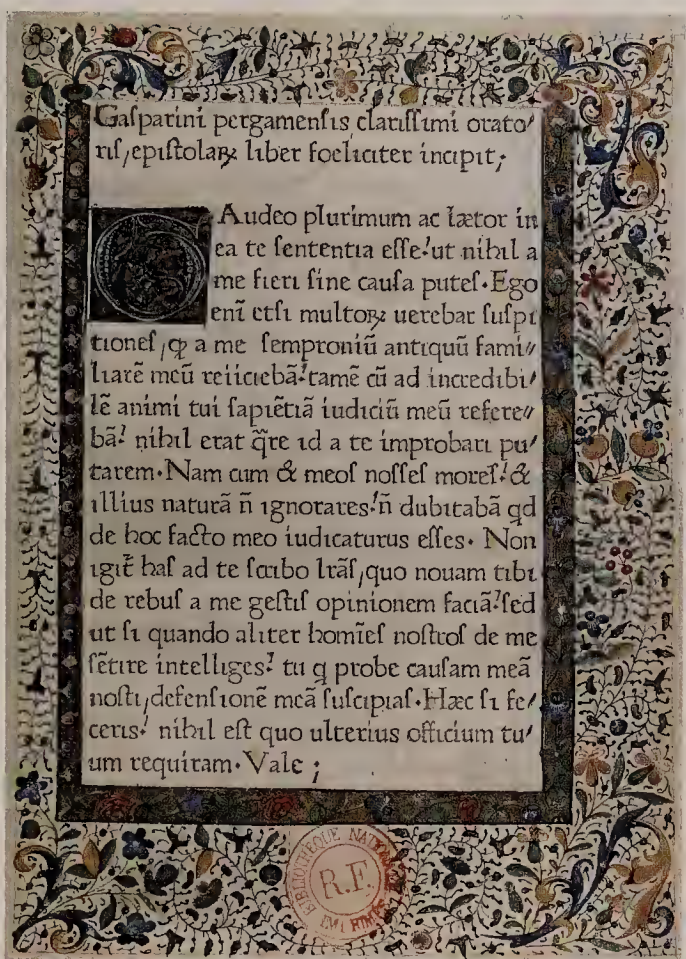 Gaſparini pergamenſis clariſſimi orato/
riſ, epiſtolaꝝ liber foeliciter incipit;
GAudeo plurimum ac lætor in
ea te ſententia eſſe! ut nihil a
me fieri ſine cauſa puteſ. Ego
eni̅ etſi multoꝝ uerebar ſuſpi
tioneſ, ꝙ a me ſemproniū antiquū fami//
liarē meū reiiciebā! tamē cū ad incredibi/
lē animi tui ſapiētiā iudiciū meū refere//
bā! nihil erat q̄re id a te improbari pu/
tarem. Nam cum & meoſ noſſeſ moreſ! &
illius naturā n̄ ignorares! n̄ dubitabā qd
de hoc facto meo iudicaturus eſſes. Non
igit̄ haſ ad te ſcribo lr̄aſ, quo nouam tibi
de rebuſ a me geſtiſ opinionem faciā! ſed
ut ſi quando aliter homīeſ noſtroſ de me
ſētire intelliges! tu q probe cauſam meā
noſti, defenſionē meā ſuſcipiaſ. Hæc ſi fe/
ceris! nihil eſt quo ulterius officium tu/
um requiram. Vale;
BIBLIOTHEQUE NATIONALE
R.F.
IMPRIMÉS